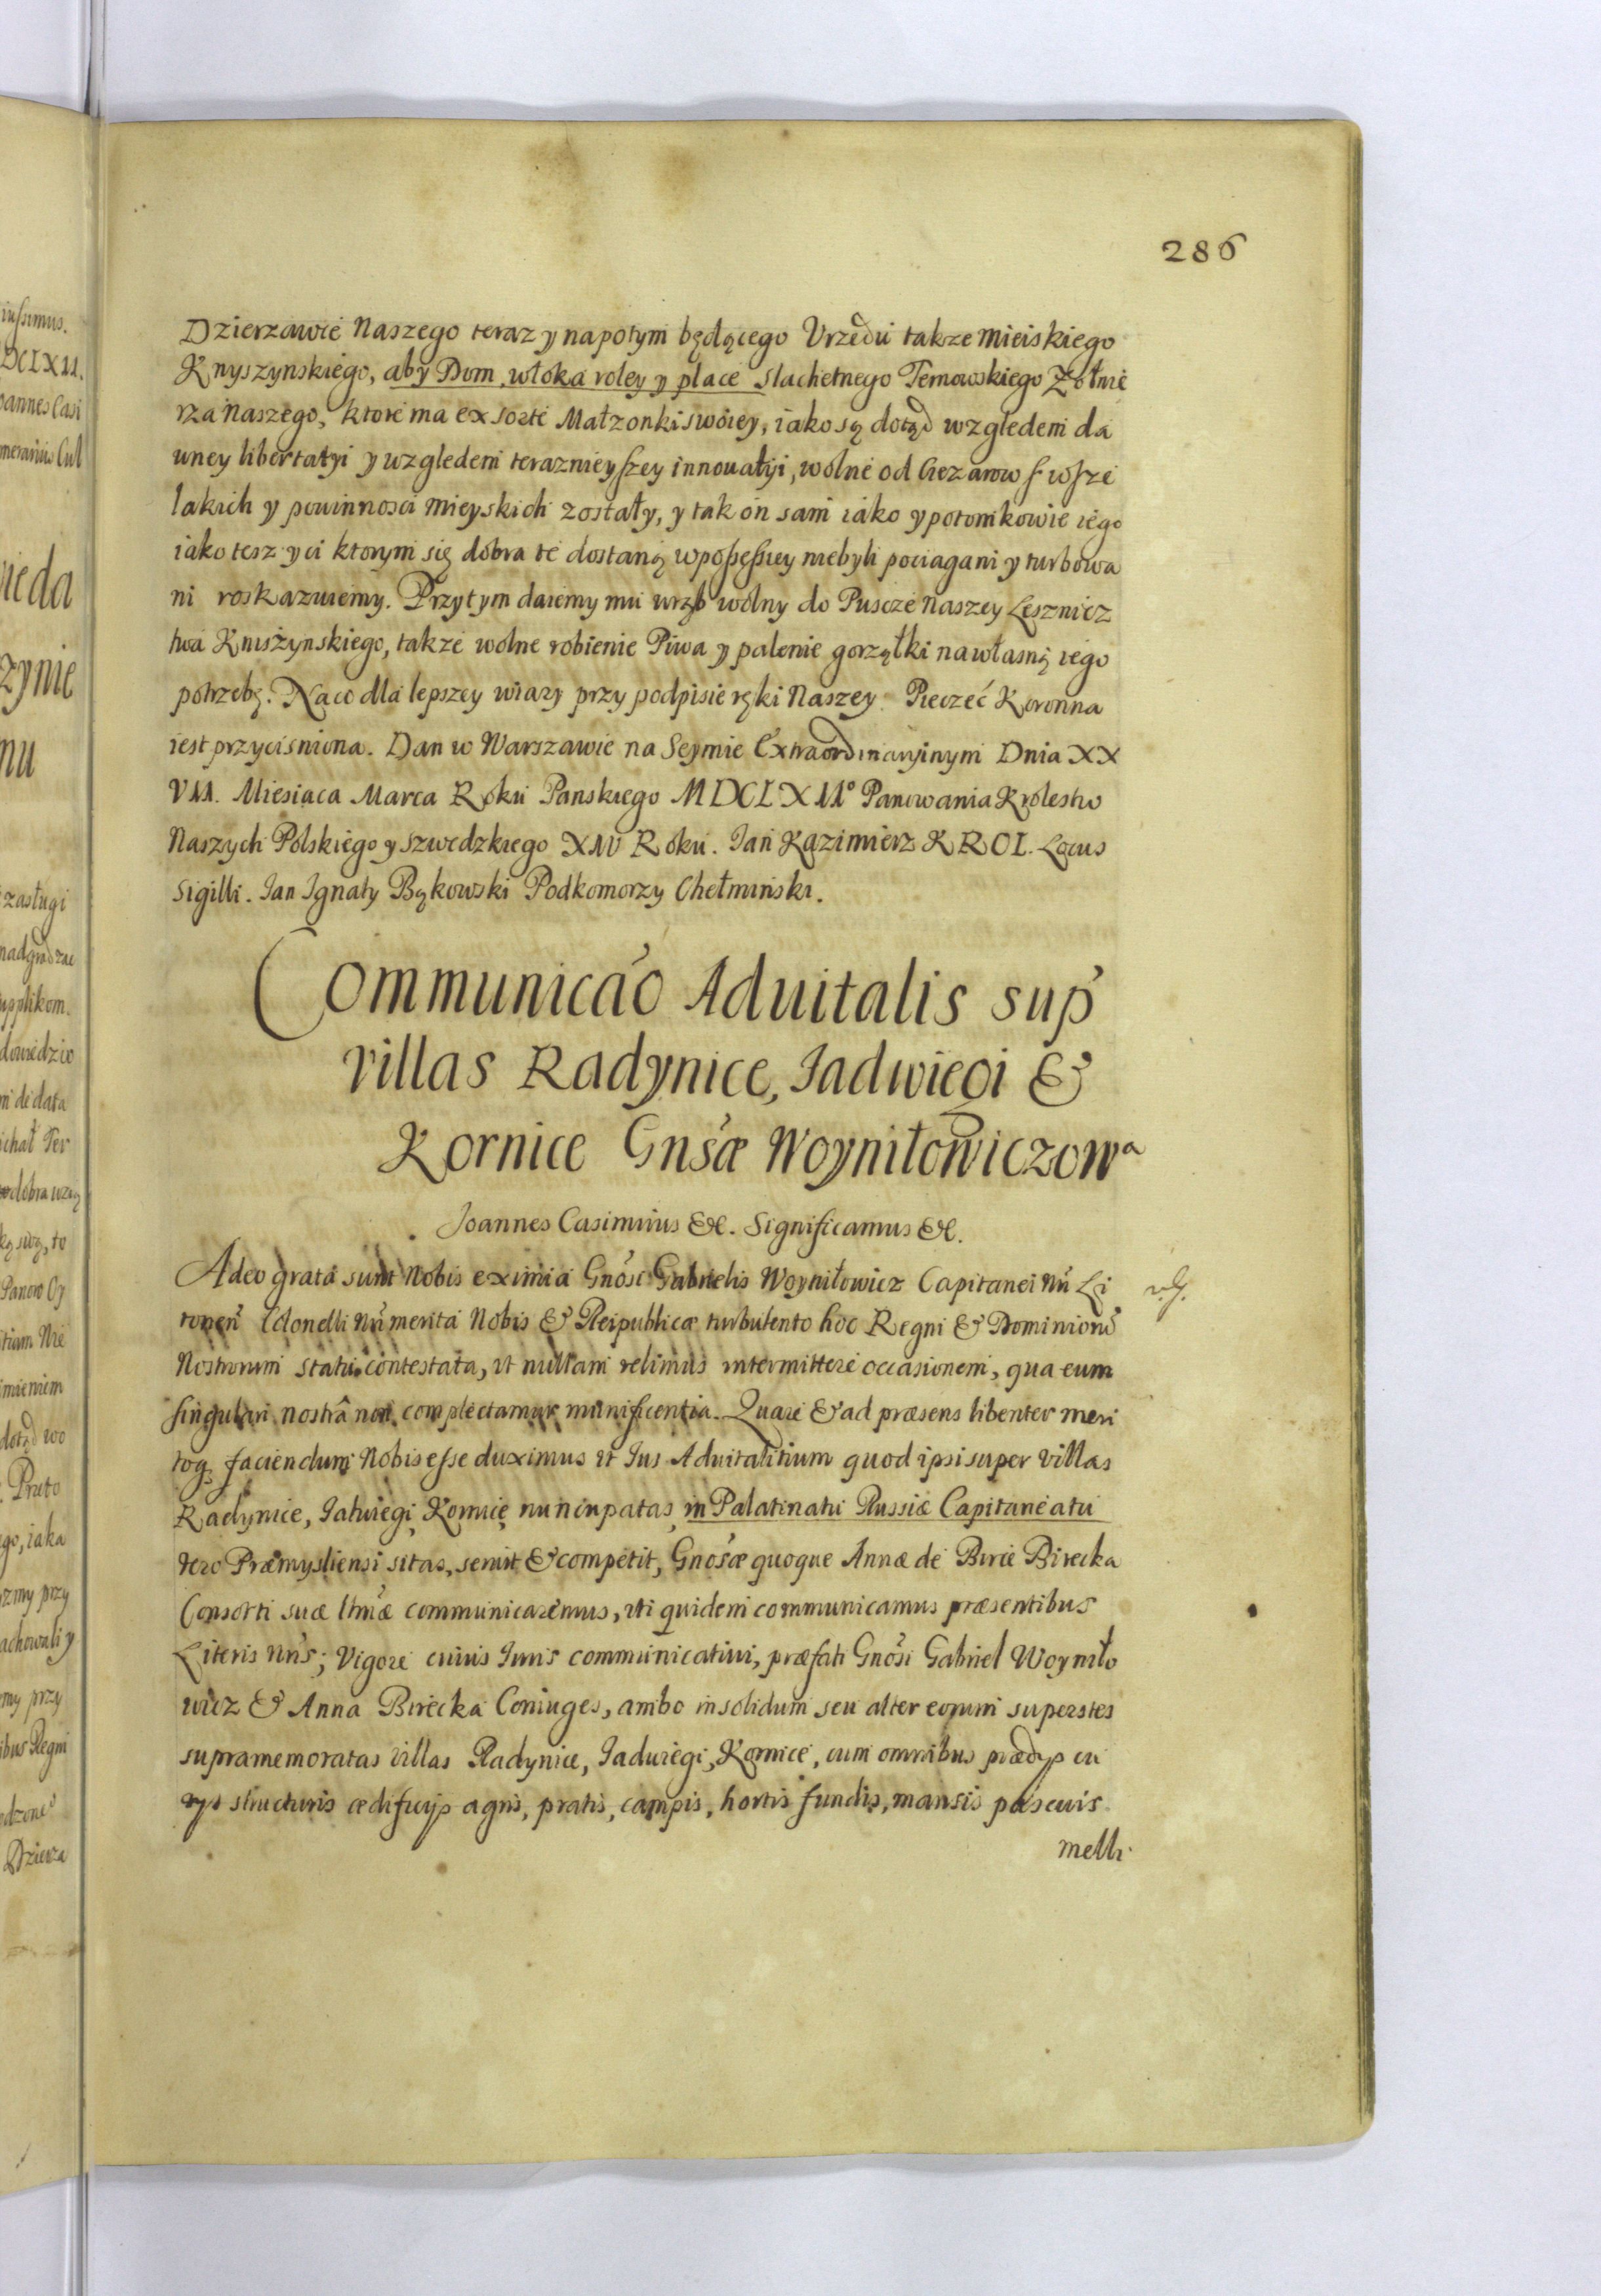 286
Dzierzawie Naszego teraz y napotym będącego Vrzędu takze Mieiskiego
Knyszynskiego, aby Dom, włoka roley y place Slachetnego Ternowskiego Zołnie
rza Naszego, ktore ma ex sorte Małzonki swoiey, iako są dotąd względem da
wney libertatyi y względem teraznieyszey innouatyi, wolne od Ciezarow swsze
lakich y powinnosci Mieyskich zostały, y tak on sam iako y potomkowie iego
iako tesz y ci ktorym się dobra te dostaną w possessiey niebyli pociagani y turbowa
ni roskazuiemy. Przytym daiemy mu wrąb wolny do Puscze Naszey Lesznicz
twa Kniszynskiego, takze wolne robienie Piwa y palenie gorzałki na własną iego
potrzebę. Naco dla lepszey wiary przy podpisie ręki Naszey. Pieczęć Koronna
iest przycisniona. Dan w Warszawie na Seymie Extraordinaryinym Dnia XX
VII. Miesiąca Marca Roku Panskiego MDCLXII° Panowania Krolestw
Naszych Polskiego y Szwedzkiego XIV Roku. Jan Kazimierz KROL. Locus
Sigilli. Jan Ignaty Bąkowski Podkomorzy Chełminski.
Communicao Aduitalis sup
villas Radynice, Jadwiegi &
Kornice Gnsæ Woyniłowiczowa
Joannes Casimirus &c. Significamus &c.
Adeo grata sunt Nobis eximia Gnosi Gabrielis Woyniłowicz Capitanei Nri Li
tonen Colonelli Nri merita Nobis & Reipublicæ turbulento hoc Regni & Dominioru
Nostrorum statu contestata, ut nullam velimus intermittere occasionem, qua eum
singulari nostra non complectamur munificentia. Quare & ad præsens libenter meri
toq faciendum Nobis esse duximus ut Jus Aduitalitium quod ipsi super villas
Radynice, Jatwiegi, Kornice nuncupatas, in Palatinatu Russiæ Capitaneatu
vero Præmysliensi sitas, seruit & competit, Gnosæ quoque Annæ de Bircie Birecka
Consorti suæ ltmæ communicaremus, uti quidem communicamus præsentibus
Literis Nris; Vigore cuius Juris communicatiui, præfati Gnosi Gabriel Woyniło
wicz & Anna Birecka Coniuges, ambo insolidum seu alter eorum superstes
supramemoratas villas Radynice, Jadwiegi, Kornice, cum omnibus prædys cu
rys structuris ædificijs agris, pratis, campis, hortis fundis, mansis pascuis
melli